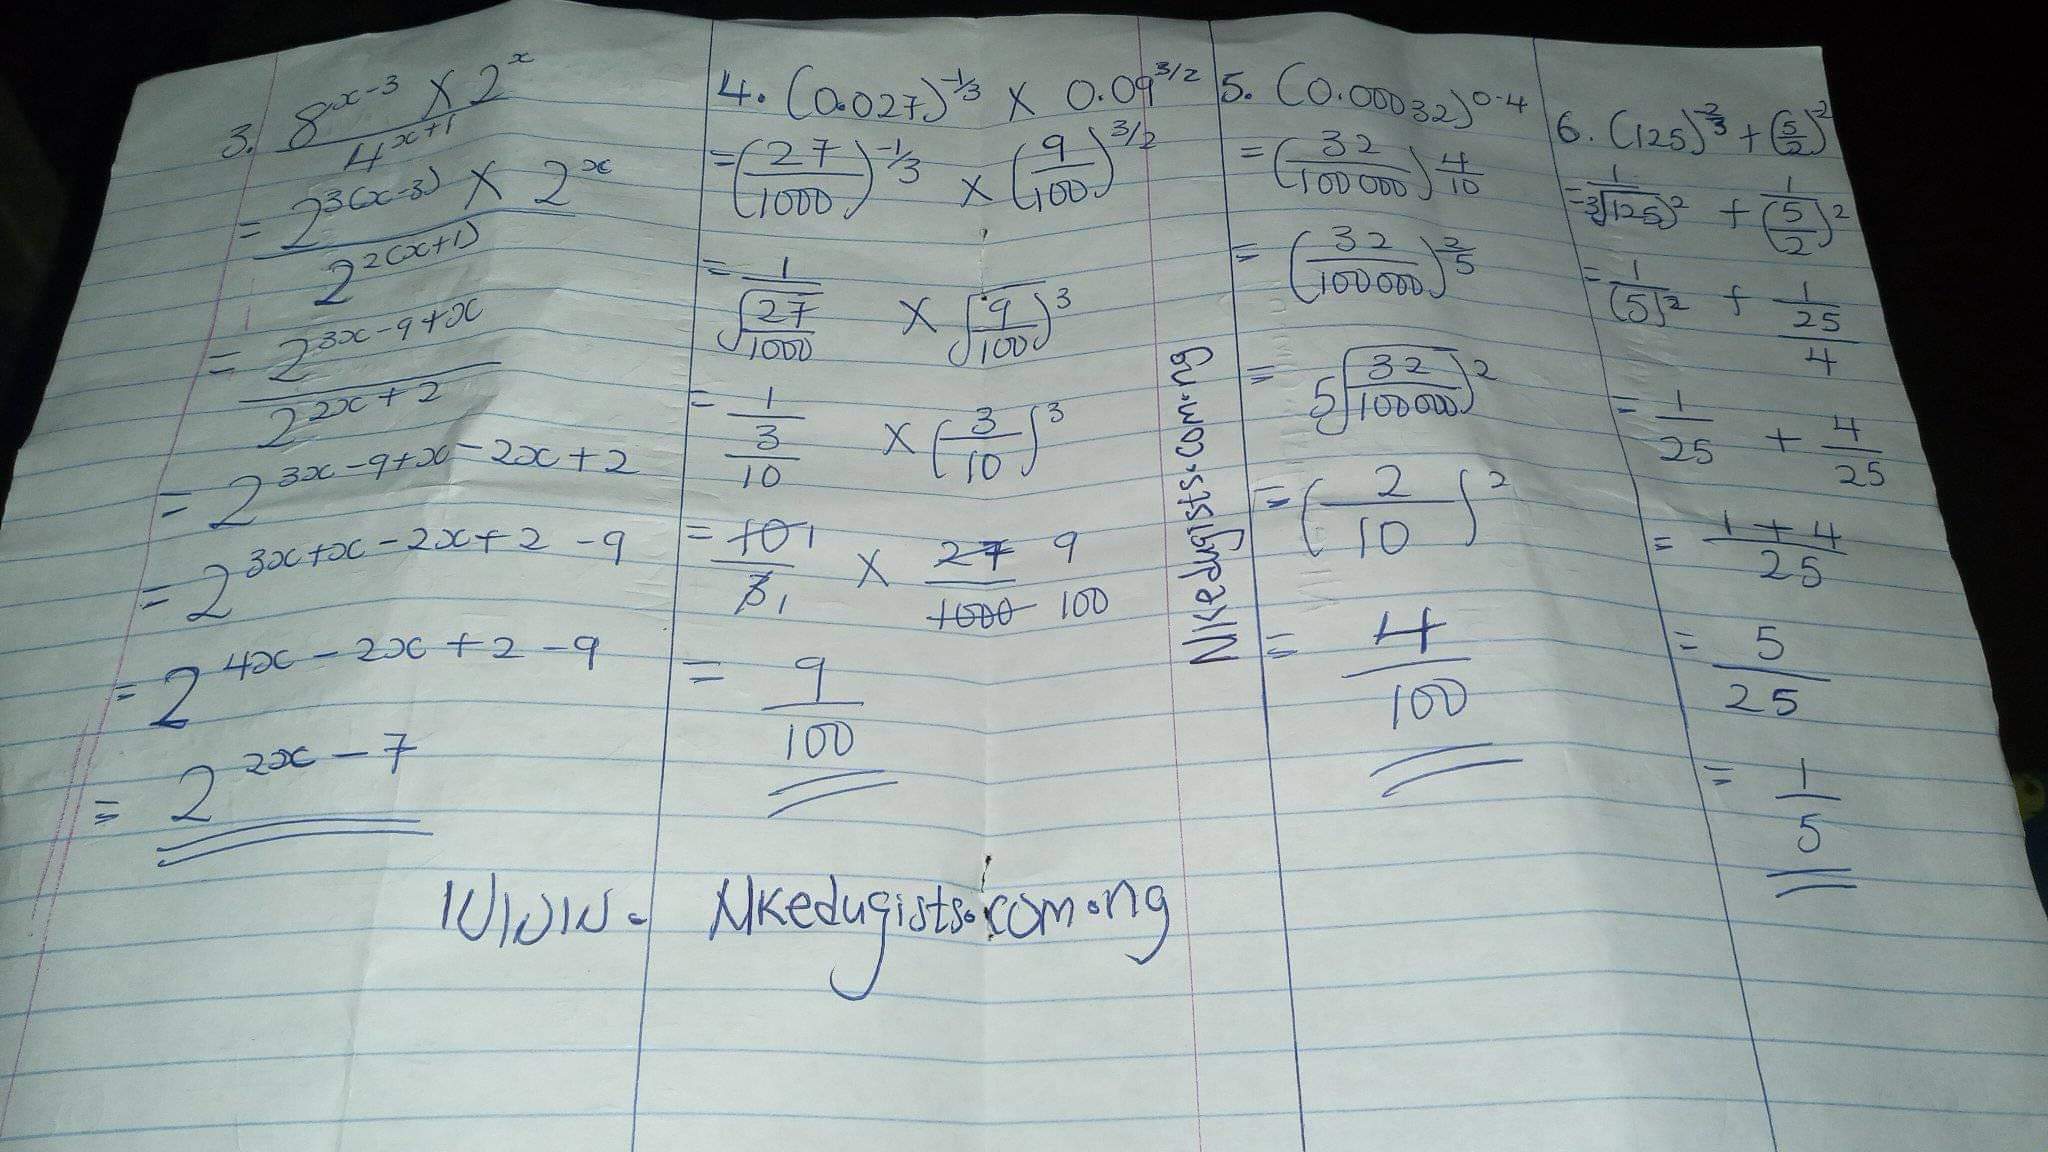 3. 8^(x-3) × 2^x / 4^(x+1)
= 2^(3(x-3)) × 2^x / 2^(2(x+1))
= 2^(3x-9+x) / 2^(2x+2)
= 2^(3x-9+x-2x+2)
= 2^(3x+x-2x+2-9)
= 2^(4x-2x+2-9)
= 2^(2x-7)
4. (0.027)^(-1/3) × 0.09^(3/2)
= (27/1000)^(-1/3) × (9/100)^(3/2)
= 1/√(27/1000) × √(9/100)^3
= 1/(3/10) × (3/10)^3
= 10 1/3 1 × 27 9/1000 100
= 9/100
Nkedugists.com.ng
5. (0.00032)^0.4
= (32/100000)^(4/10)
= (32/100000)^(2/5)
= 5√(32/100000)^2
= (2/10)^2
= 4/100
6. (125)^(2/3) + (5/2)^2
= 1/3√(125)^2 + 1/(5/2)^2
= 1/(5)^2 + 1/(25/4)
= 1/25 + 4/25
= 1+4/25
= 5/25
= 1/5
WWW. Nkedugists.com.ng